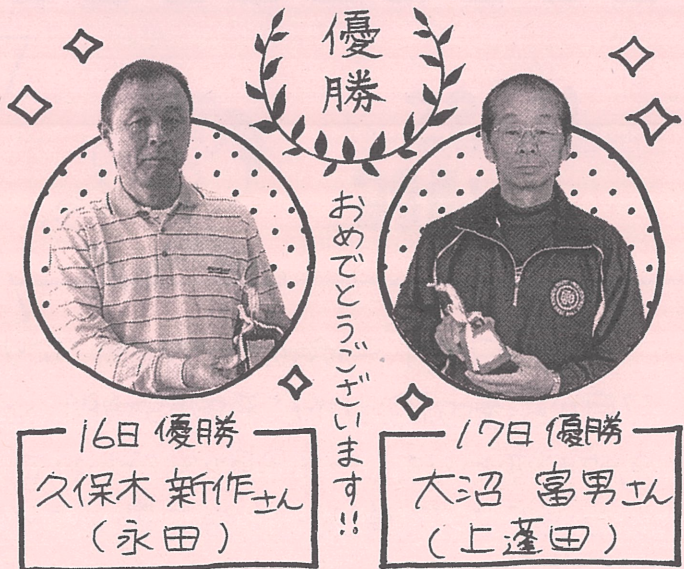 優勝
おめでとうございます!!
16日 優勝
久保木 新作さん
(永田)
17日 優勝
大沼 富男さん
(上蓬田)